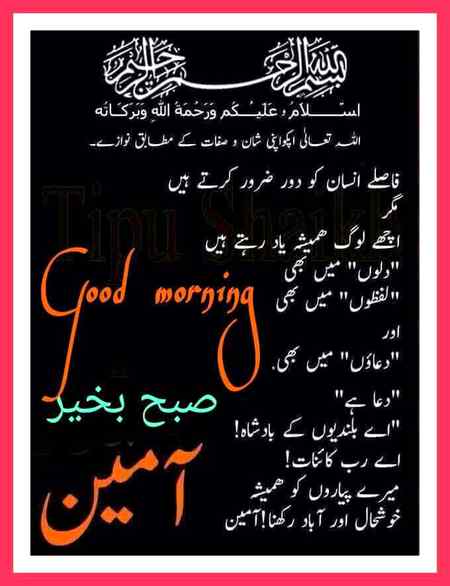 بسم الله الرحمن الرحيم
اسّــــلامُ و عَلَيــكُم وَرَحمَةُ اللّٰهِ وَبَرَكَاتُه
اللہ تعالٰی آپکو اپنی شان و صفات کے مطابق نوازے۔
فاصلے انسان کو دور ضرور کرتے ہیں
مگر
اچھے لوگ ہمیشہ یاد رہتے ہیں
"دلوں" میں بھی
"لفظوں" میں بھی
اور
"دعاؤں" میں بھی.
"دعا ہے"
"اے بلندیوں کے بادشاہ!
اے رب کائنات!
میرے پیاروں کو ہمیشہ
خوشحال اور آباد رکھنا!آمین
Good morning
صبح بخیر
آمین
Tipu Shaikh